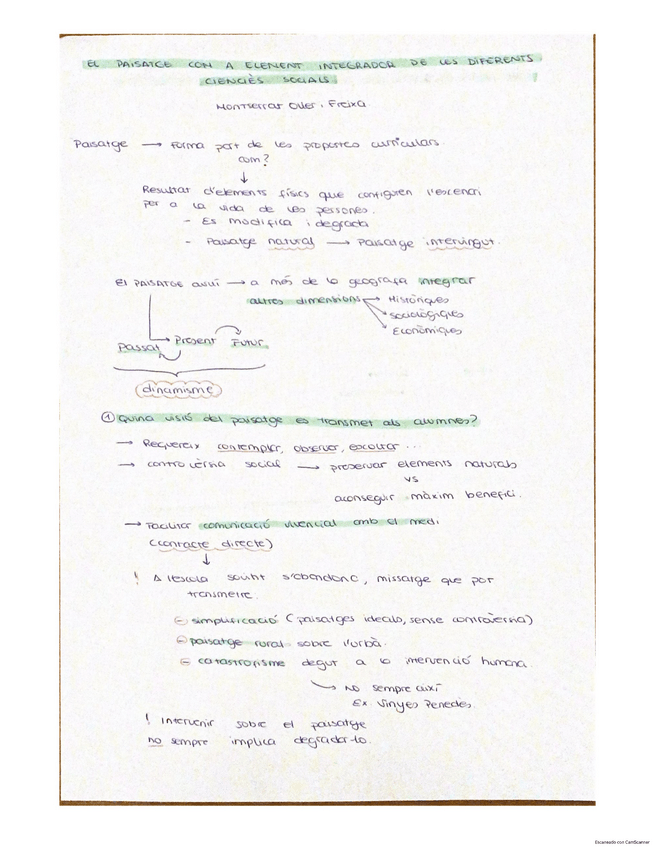 EL PAISATGE COM A ELEMENT INTEGRADOR DE LES DIFERENTS
CIENCIÈS SOCIALS.
Montserrat Oller i Freixa
Paisatge → Forma part de les propostes curriculars.
com?
↓
Resultat d'elements físics que configuren l'escenari
per a la vida de les persones.
- Es modifica i degrada
- Paisatge natural → Paisatge intervingut.
El PAISATGE avui → a més de la geografia integrar
altres dimensions → Històriques
→ Sociològiques
→ Econòmiques
Passat Present Futur
dinamisme
① Quina visió del paisatge es transmet als alumnes?
→ Requereix contemplar, observar, escoltar ...
→ controvèrsia social → preservar elements naturals
vs
aconseguir màxim benefici.
→ Facilitar comunicació vivencial amb el medi
(contacte directe)
↓
! A l'escola sovint s'abandona, missatge que pot
transmetre.
- simplificació (paisatges idealo, sense controvèrsia)
- paisatge rural sobre l'urbà.
- catastrofisme degut a la intervenció humana.
→ No sempre així
Ex Vinyes Penedès.
! Intervenir sobre el paisatge
no sempre implica degradar-lo.
Escaneado con CamScanner